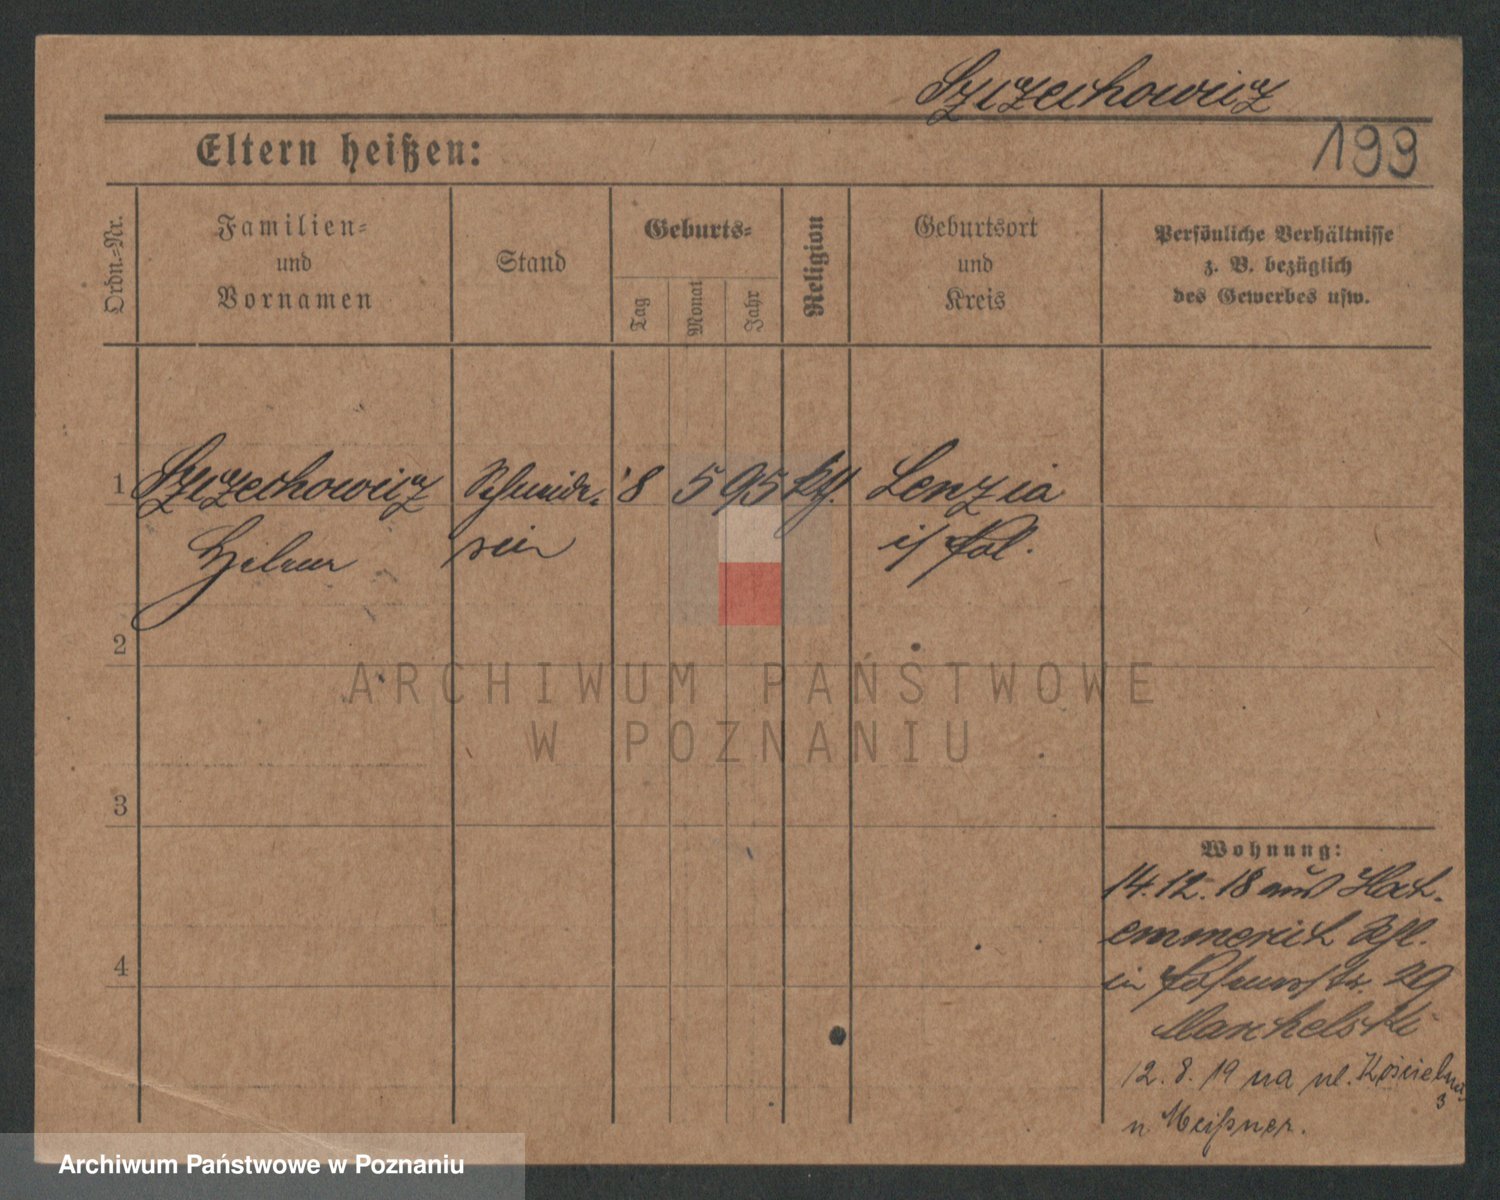 Szczechowicz
199
Eltern heißen:
Ordn.-Nr.
Familien-
und
Vornamen
Stand
Geburts-
Tag
Monat
Jahr
Religion
Geburtsort
und
Kreis
Persönliche Verhältnisse
z. B. bezüglich
des Gewerbes usw.
1 Szczechowicz Schneide- 8 5 95 kth. Lenzia
rin
i/ Pol.
2
ARCHIWUM PAŃSTWOWE
W POZNANIU
3
Wohnung:
14.12.18 aus Hoch-
emmerich
in 29
12.8.19 na ul. Kościelna
3
u Meißner.
4
Archiwum Państwowe w Poznaniu